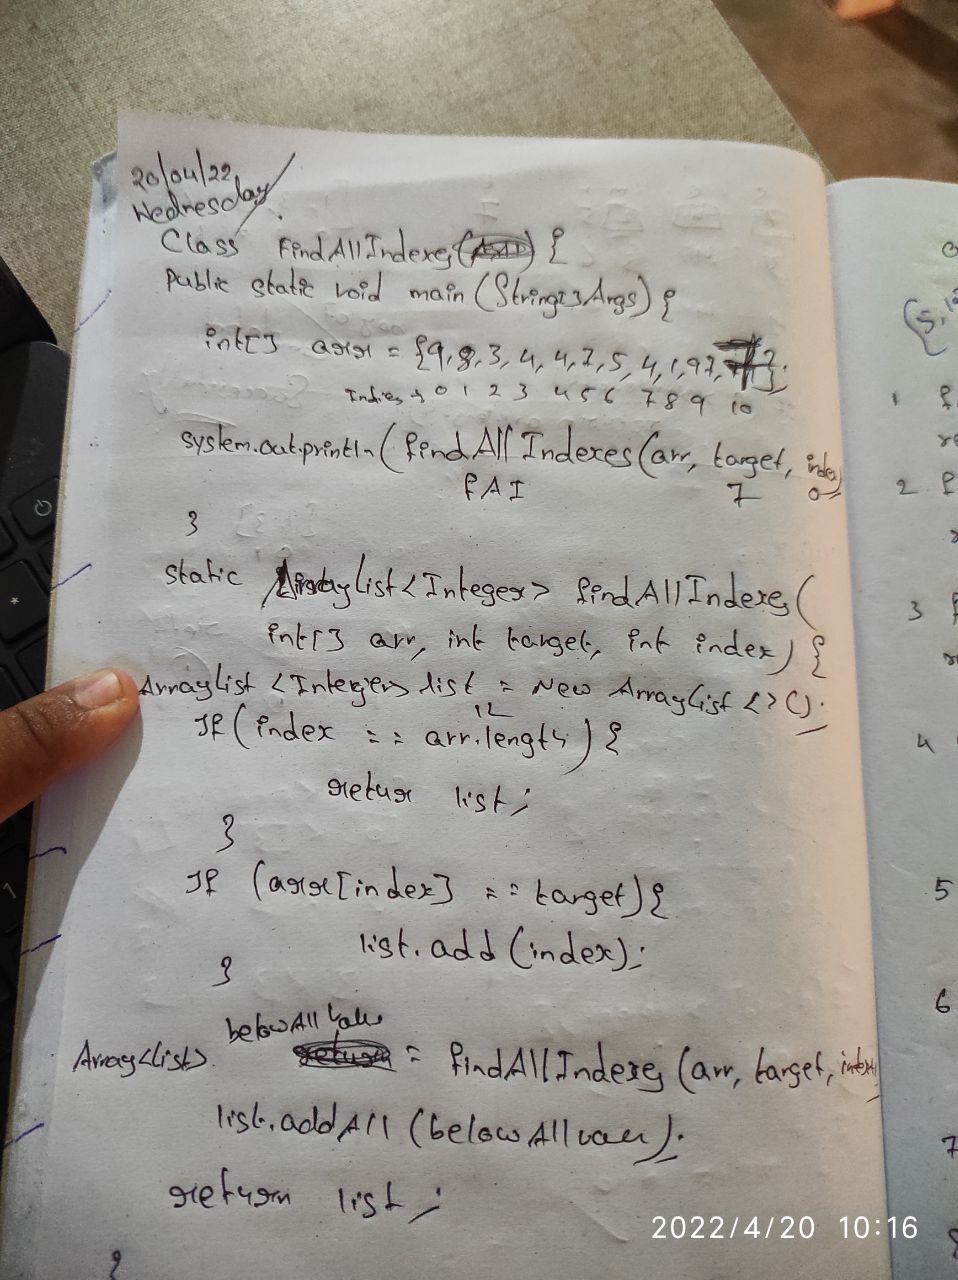 20/04/22
Wednesday
Class FindAllIndexes {
Public static void main (String[] Args) {
int[] arr = {9, 8, 3, 4, 4, 7, 5, 4, 1, 97,
Indies → 0 1 2 3 4 5 6 7 8 9 10
system.out.println (findAllIndexes (arr, target, index)
FAI 7 0
}
static ArrayList<Integer> findAllIndexes (
int[] arr, int target, int index) {
ArrayList <Integer> list = New ArrayList <> ();
12
If (index == arr.length) {
retur list;
}
If (arr[index] == target) {
list.add (index);
}
below All
Array<List> = findAllIndexes (arr, target, index
list.addAll (below All );
return list;
}
0
(5, 12
1 f
re
2 f
3 f
4
5
6
7
8
2022/4/20 10:16